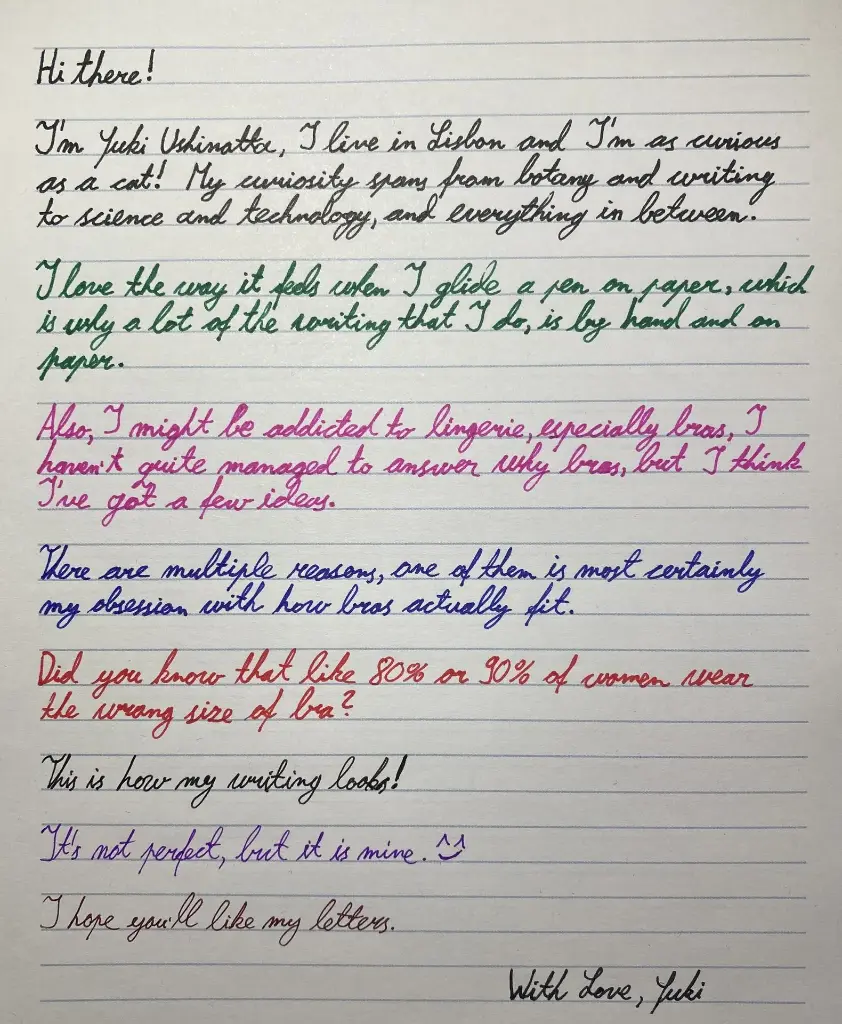 Hi there!
I'm Yuki Ushinatta, I live in Lisbon and I'm as curious
as a cat! My curiosity spans from botany and writing
to science and technology, and everything in between.
I love the way it feels when I glide a pen on paper, which
is why a lot of the writing that I do, is by hand and on
paper.
Also, I might be addicted to lingerie, especially bras, I
haven't quite managed to answer why bras, but I think
I've got a few ideas.
There are multiple reasons, one of them is most certainly
my obsession with how bras actually fit.
Did you know that like 80% or 90% of women wear
the wrong size of bra?
This is how my writing looks!
It's not perfect, but it is mine. ^‿^
I hope you'll like my letters.
With Love, Yuki